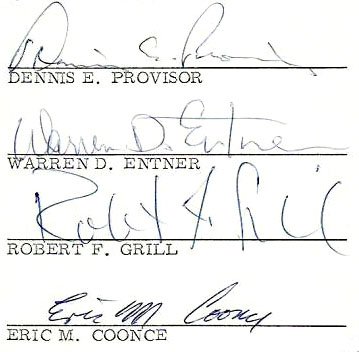 Dennis E. Provisor
DENNIS E. PROVISOR
Warren D. Entner
WARREN D. ENTNER
Robert F. Grill
ROBERT F. GRILL
Eric M Coonce
ERIC M. COONCE